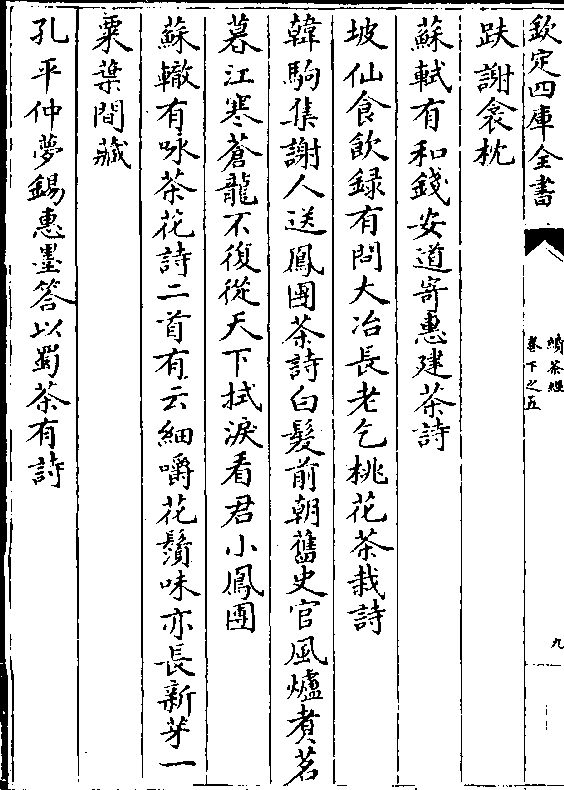 欽定四庫全書
續茶經
卷下之五
九
趺謝衾枕
蘇軾有和錢安道寄惠建茶詩
坡仙食飲録有問大冶長老乞桃花茶栽詩
韓駒集謝人送鳳團茶詩白髮前朝舊史官風爐煑茗
暮江寒蒼龍不復從天下拭淚看君小鳳團
蘇轍有咏茶花詩二首有云細嚼花鬚味亦長新芽一
粟葉間藏
孔平仲夢錫惠墨答以蜀茶有詩